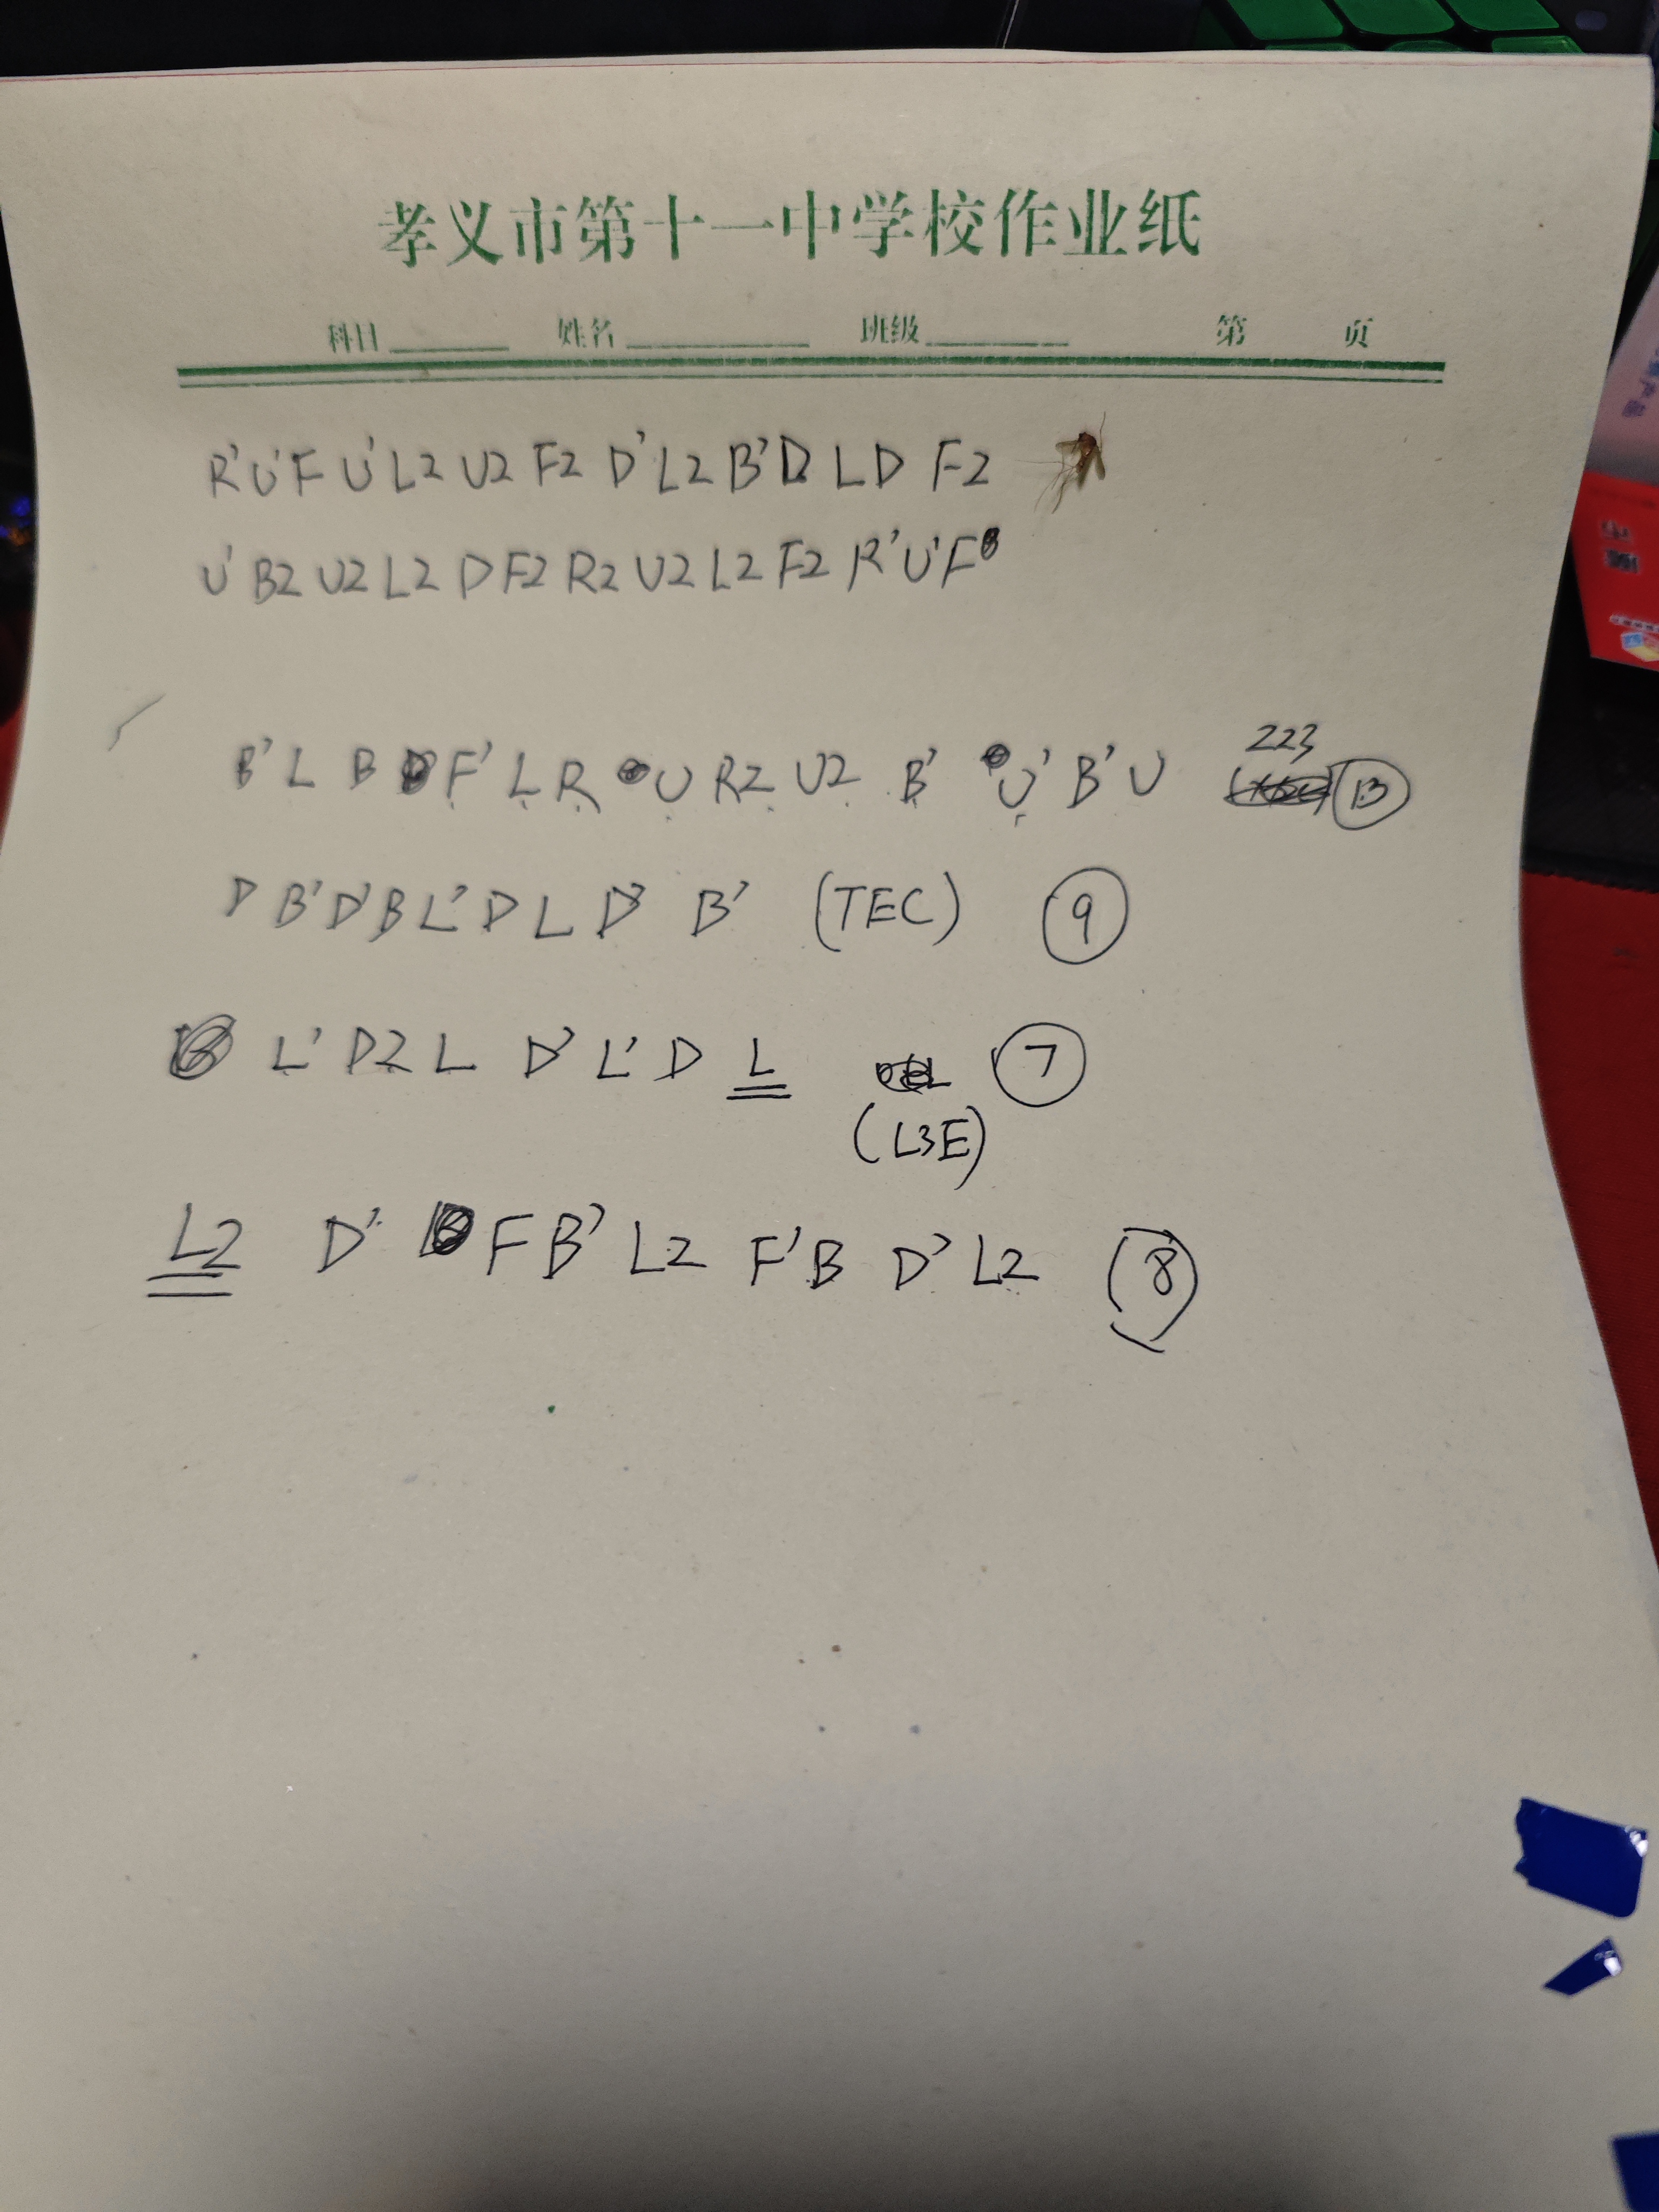 孝义市第十一中学校作业纸
科目 姓名 班级 第 页
R' U' F U' L2 U2 F2 D' L2 B' D L D F2
U' B2 U2 L2 D F2 R2 U2 L2 F2 R' U' F
223
B' L B F' L R U R2 U2 B' U' B' U 13
D B' D' B L' D L D' B' (TEC) 9
L' D2 L D' L' D L 7
(L3E)
L2 D' F B' L2 F' B D' L2 8